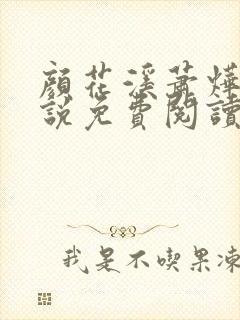 顏花溪蕭燁
說免費閱讀
我是不喫果凍